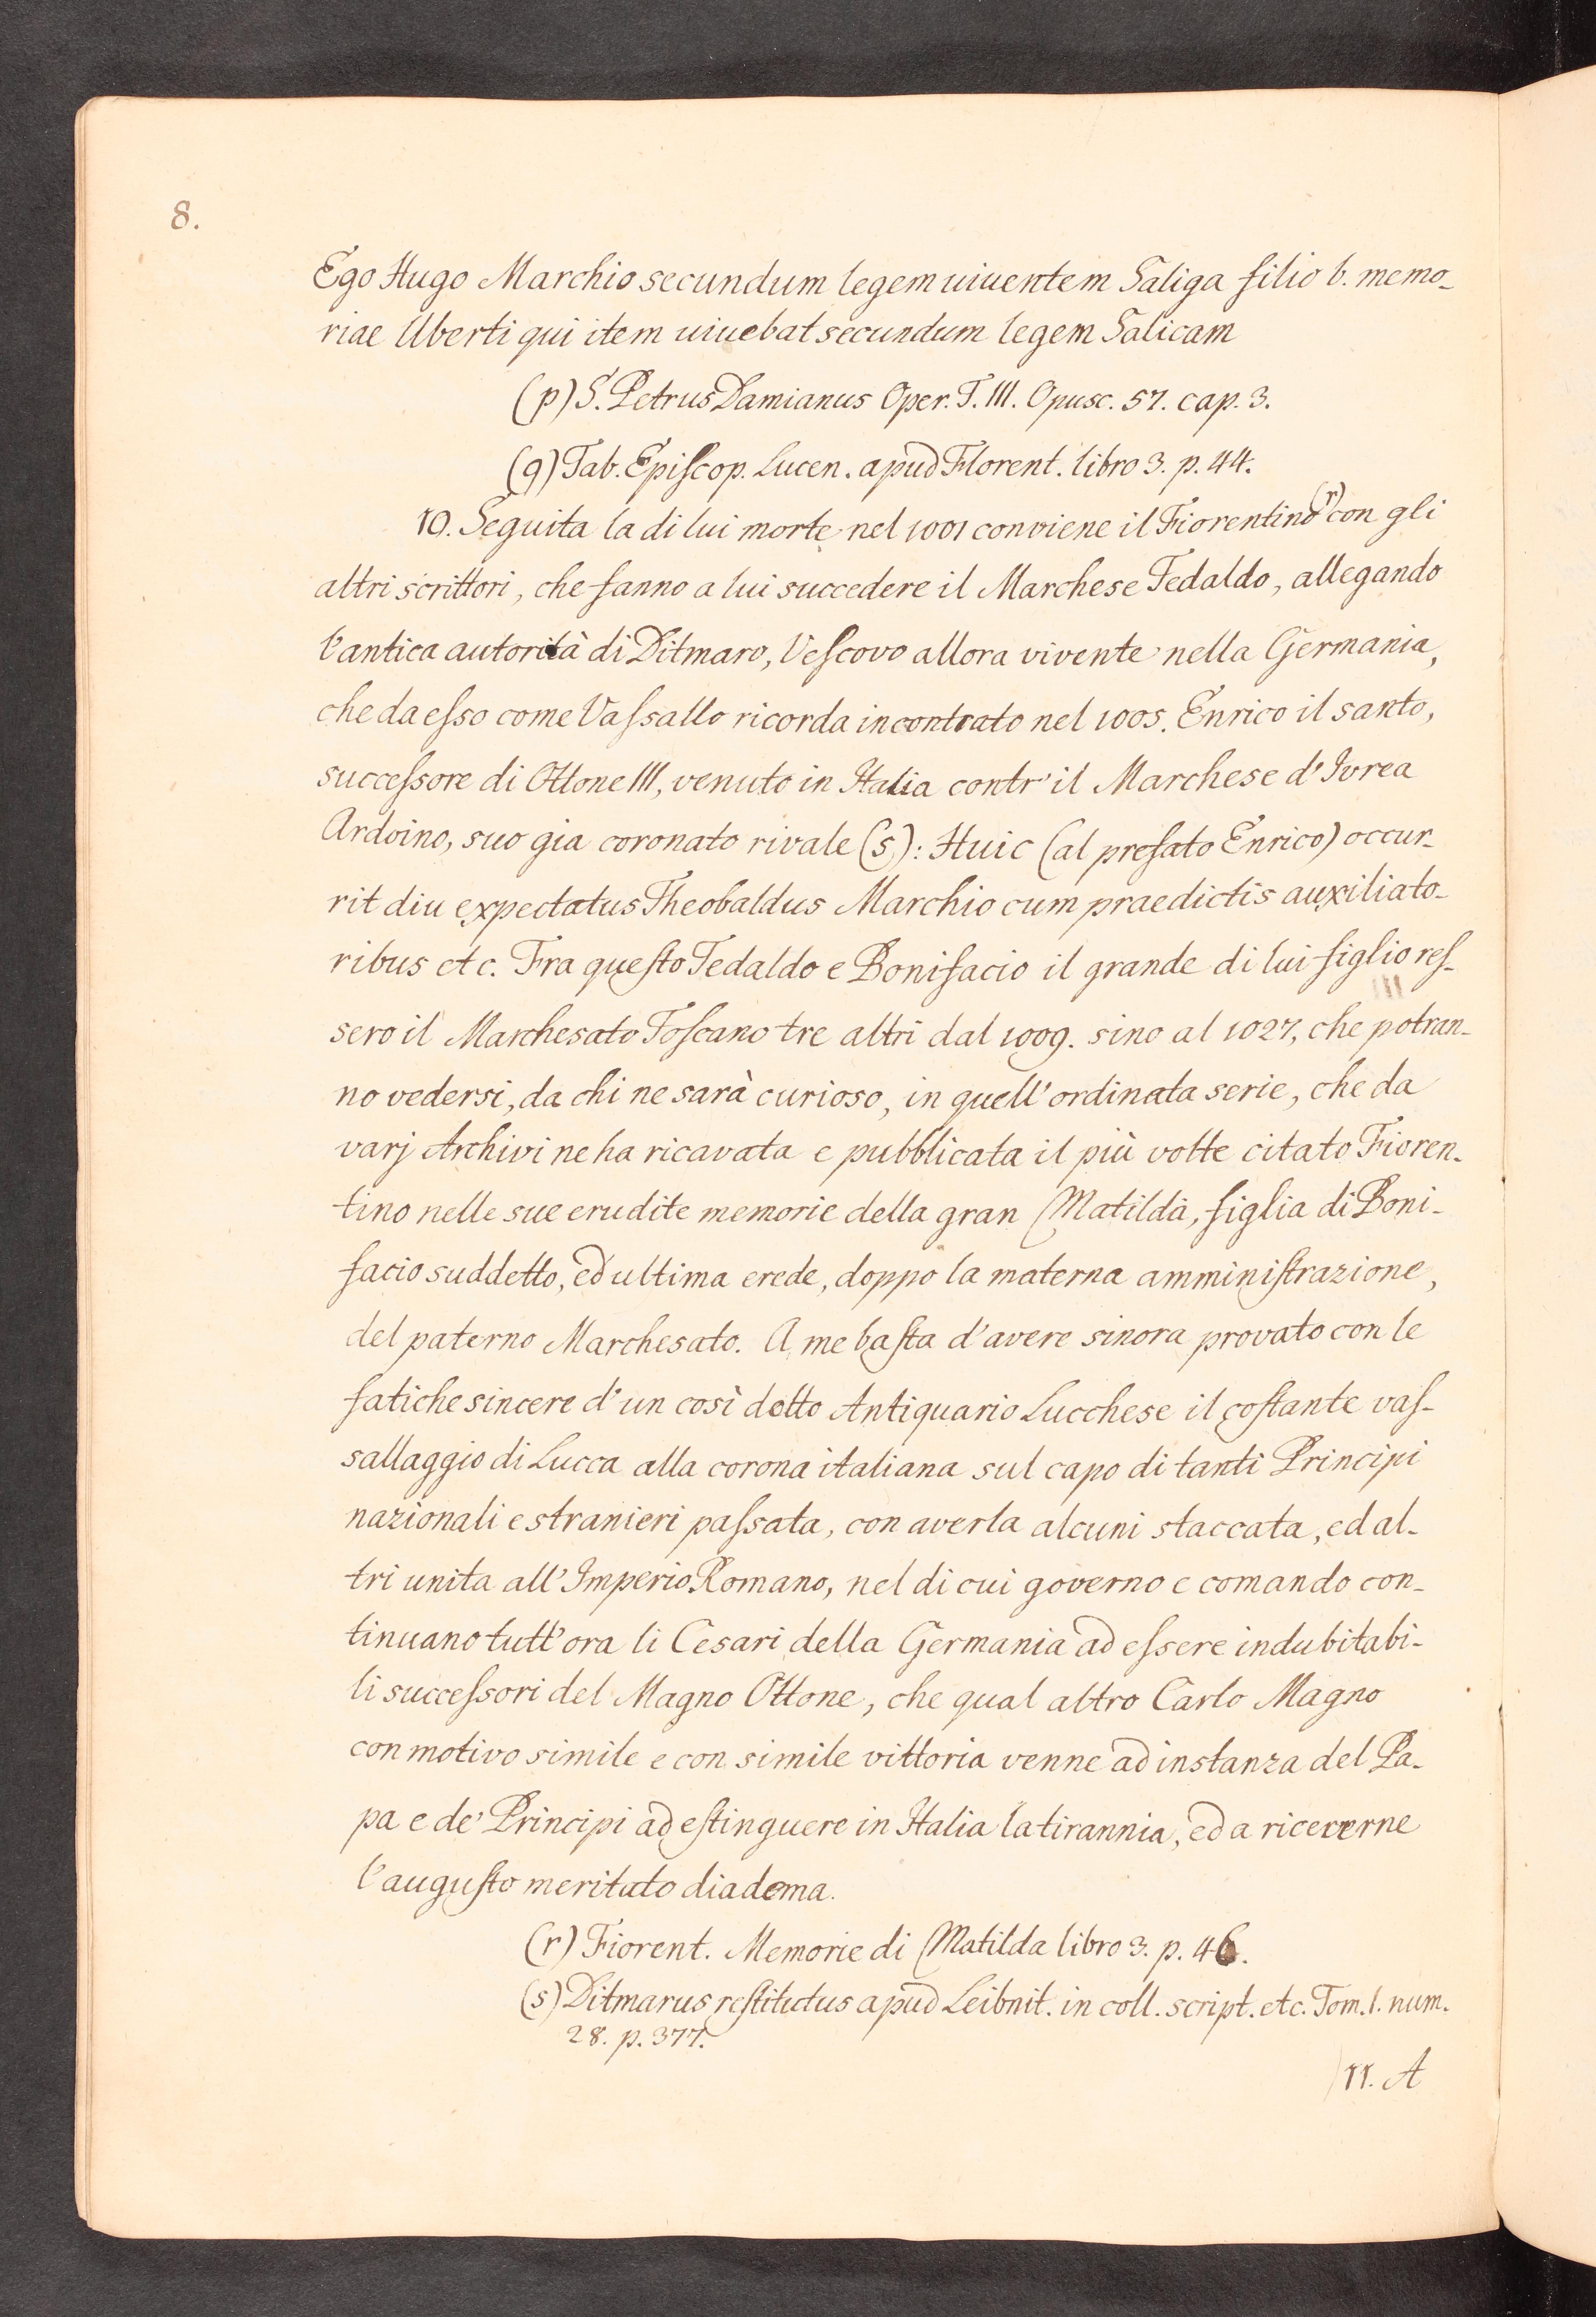 8.
Ego Hugo Marchio secundum legem uiuentem Saliga filio b. memo-
riae Uberti qui item uiuebat secundum legem Salicam
(p) S. Petrus Damianus Oper. T. III. Opusc. 57. cap. 3.
(q) Tab. Epiſcop. Lucen. apud Florent. libro 3. p. 44.
10. Seguita la di lui morte nel 1001 conviene il Fiorentino (r) con gli
altri scrittori, che fanno a lui succedere il Marchese Tedaldo, allegando
l'antica autorità di Ditmaro, Veſcovo allora vivente nella Germania,
che da eſso come Vaſsallo ricorda incontrato nel 1005. Enrico il santo,
succeſsore di Ottone III, venuto in Italia contr' il Marchese d' Ivrea
Ardoino, suo gia coronato rivale (s): Huic (al prefato Enrico) occur-
rit diu expectatus Theobaldus Marchio cum praedictis auxiliato-
ribus etc. Fra queſto Tedaldo e Bonifacio il grande di lui figlio reſ-
sero il Marchesato Toſcano tre altri dal 1009. sino al 1027, che potran-
no vedersi, da chi ne sarà curioso, in quell' ordinata serie, che da
varj Archivi ne ha ricavata e pubblicata il più volte citato Fioren-
tino nelle sue erudite memorie della gran Matilda, figlia di Boni-
facio suddetto, ed ultima erede, doppo la materna amminiſtrazione,
del paterno Marchesato. A me baſta d' avere sinora provato con le
fatiche sincere d' un così dotto Antiquario Lucchese il coſtante vaſ-
sallaggio di Lucca alla corona italiana sul capo di tanti Principi
nazionali e stranieri paſsata, con averla alcuni staccata, ed al-
tri unita all' Imperio Romano, nel di cui governo e comando con-
tinuano tutt' ora li Cesari della Germania ad eſsere indubitabi-
li succeſsori del Magno Ottone, che qual altro Carlo Magno
con motivo simile e con simile vittoria venne ad instanza del Pa-
pa e de' Principi ad eſtinguere in Italia la tirannia, ed a riceverne
l'auguſto meritato diadema.
(r) Fiorent. Memorie di Matilda libro 3. p. 46.
(s) Ditmarus reſtitutus apud Leibnit. in coll. script. etc. Tom. I. num.
28. p. 377.
11. A